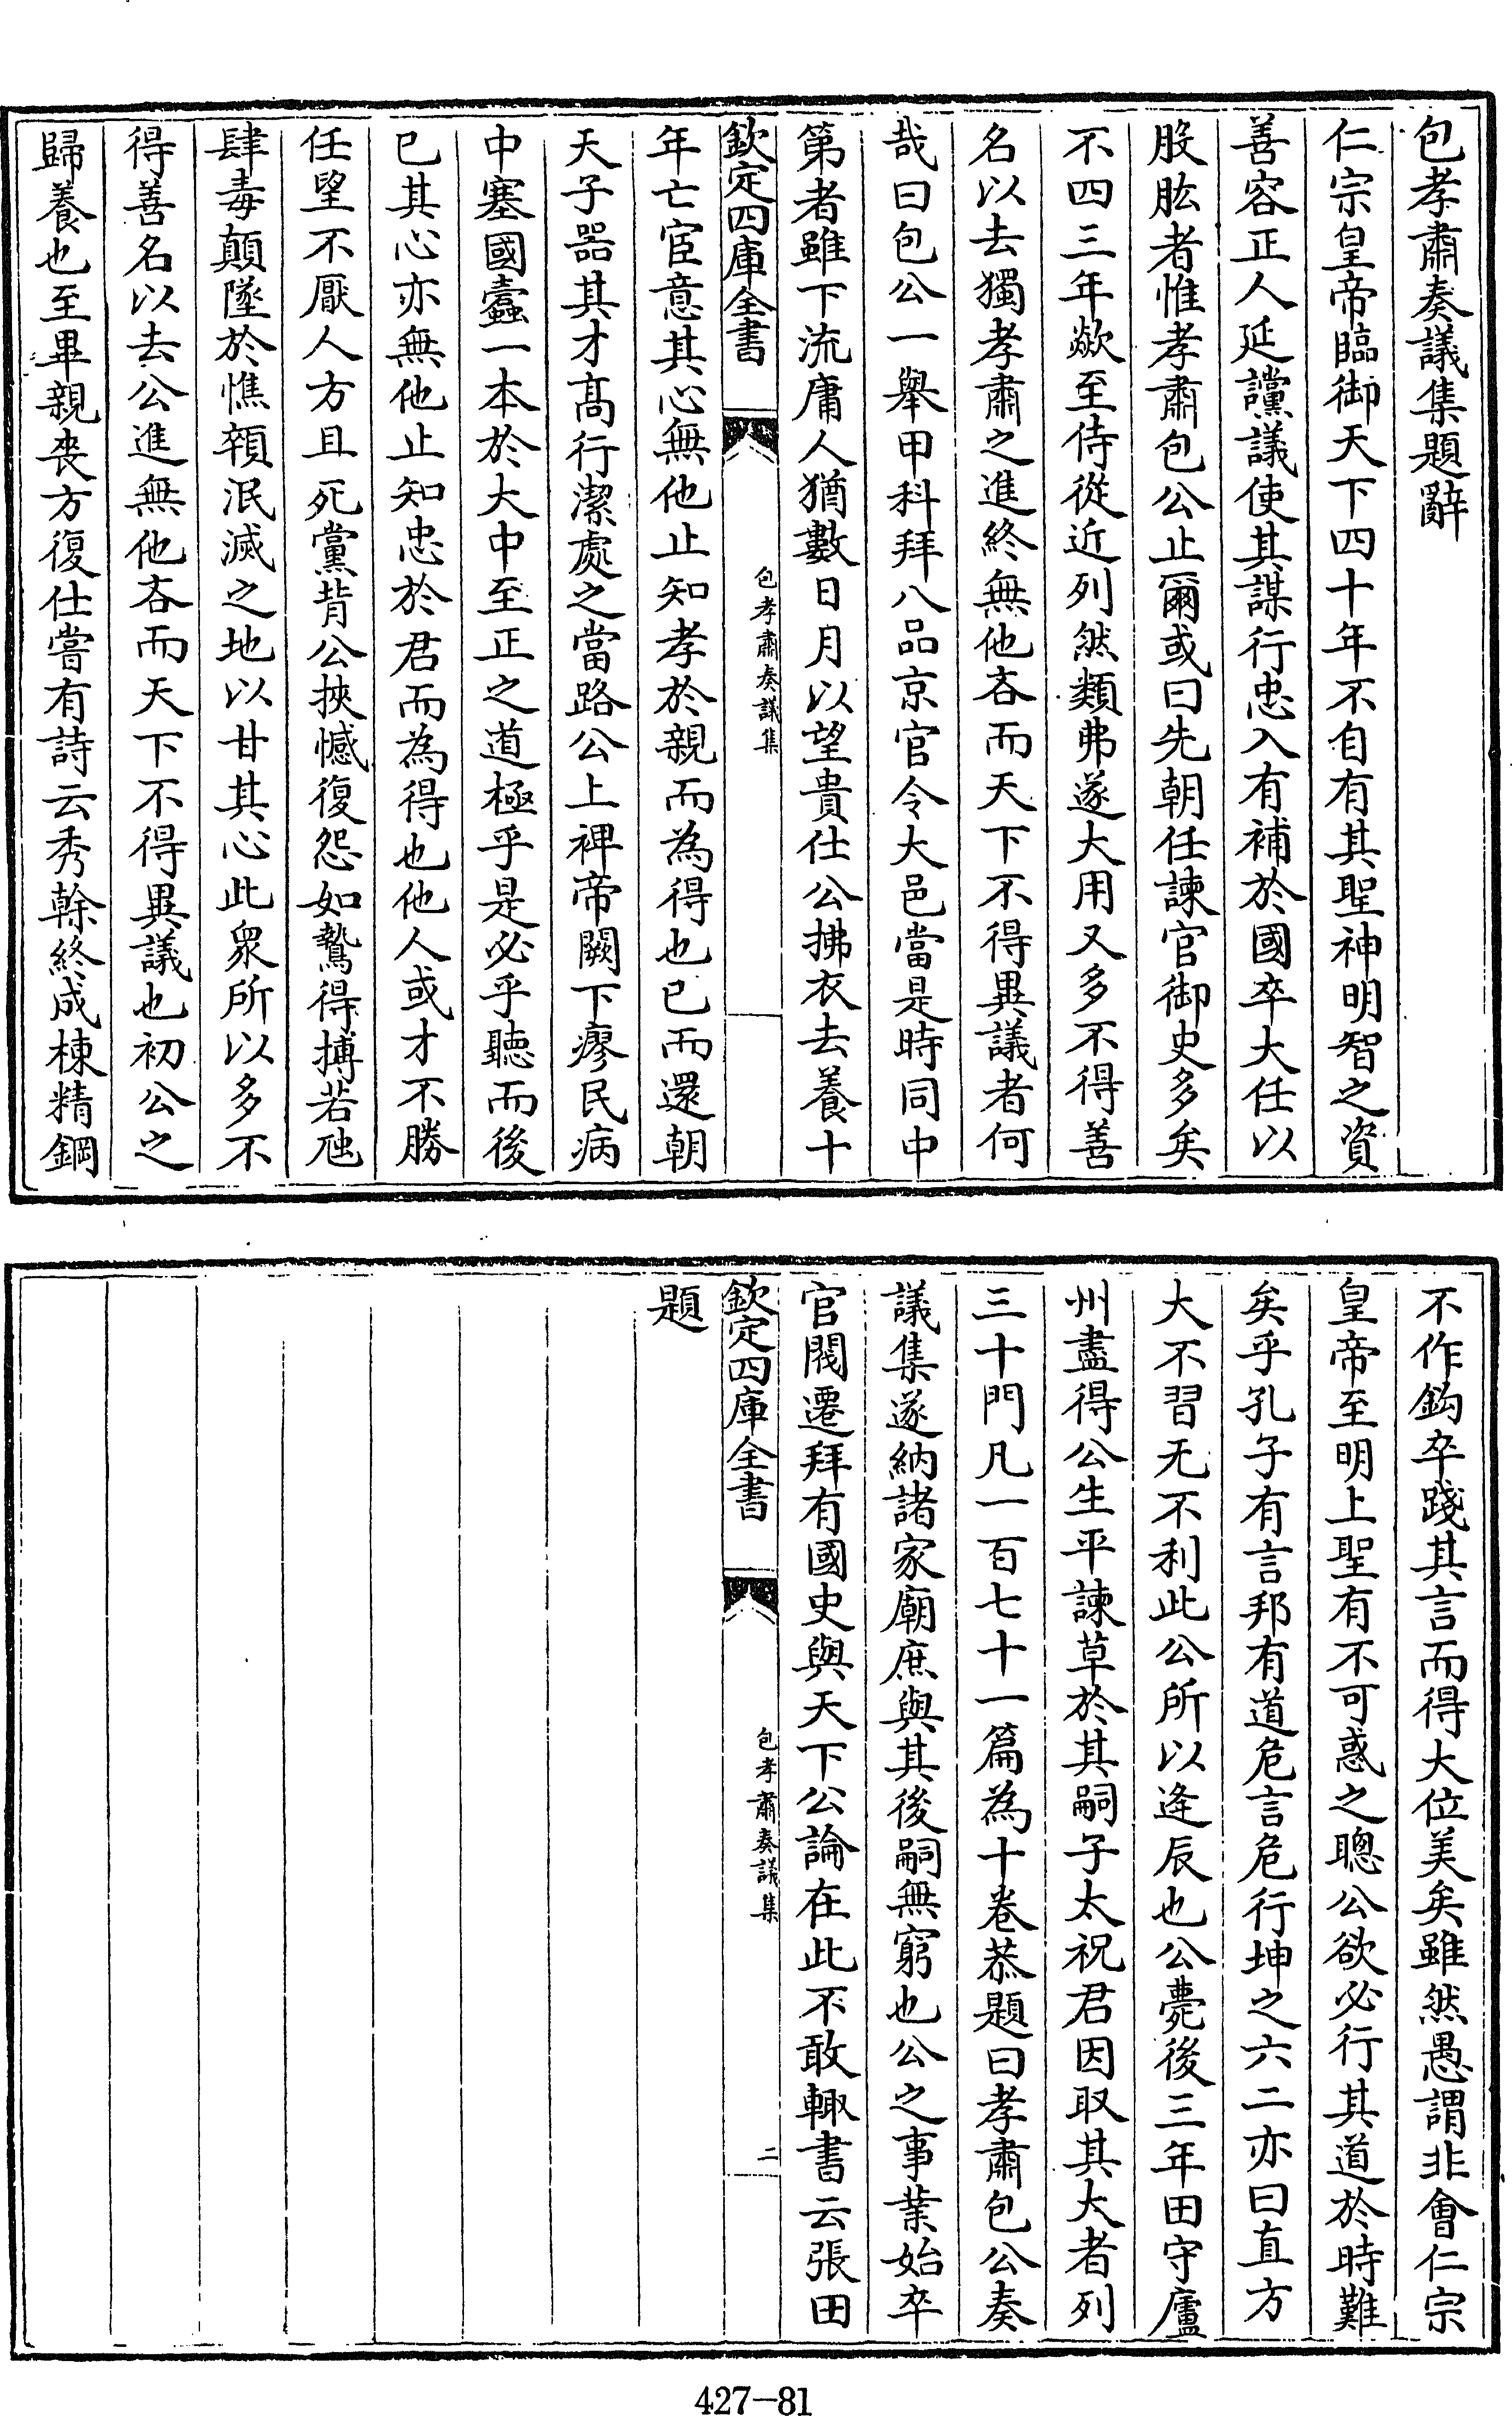 包孝肅奏議集題辭
仁宗皇帝臨御天下四十年不自有其聖神明智之資
善容正人延讜議使其謀行忠入有補於國卒大任以
股肱者惟孝肅包公止爾或曰先朝任諫官御史多矣
不四三年歘至侍從近列然類弗遂大用又多不得善
名以去獨孝肅之進終無他吝而天下不得異議者何
哉曰包公一舉甲科拜八品京官令大邑當是時同中
第者雖下流庸人猶數日月以望貴仕公拂衣去養十
欽定四庫全書
包孝肅奏議集
年亡宦意其心無他止知孝於親而為得也已而還朝
天子器其才高行潔處之當路公上裨帝闕下瘳民病
中塞國蠹一本於大中至正之道極乎是必乎聽而後
已其心亦無他止知忠於君而為得也他人或才不勝
任望不厭人方且死黨背公挾憾復怨如鷙得搏若虺
肆毒顛墜於憔顇泯滅之地以甘其心此衆所以多不
得善名以去公進無他吝而天下不得異議也初公之
歸養也至畢親喪方復仕嘗有詩云秀榦終成棟精鋼
不作鈎卒踐其言而得大位美矣雖然愚謂非會仁宗
皇帝至明上聖有不可惑之聰公欲必行其道於時難
矣乎孔子有言邦有道危言危行坤之六二亦曰直方
大不習无不利此公所以逄辰也公薨後三年田守廬
州盡得公生平諫草於其嗣子太祝君因取其大者列
三十門凡一百七十一篇為十卷恭題曰孝肅包公奏
議集遂納諸家廟庶與其後嗣無窮也公之事業始卒
官閥遷拜有國史與天下公論在此不敢輙書云張田
欽定四庫全書
包孝肅奏議集
二
題
427-81